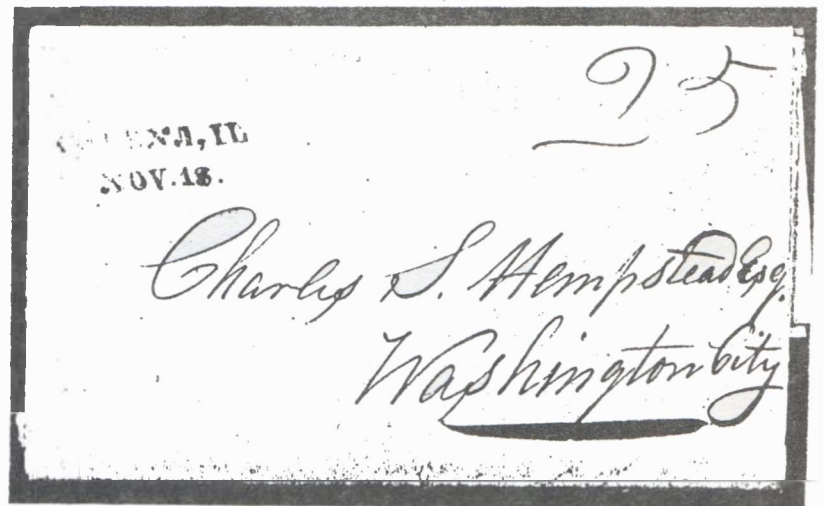 25
NOV. 18.
Charles S. Hempstead Esq.
Washington City